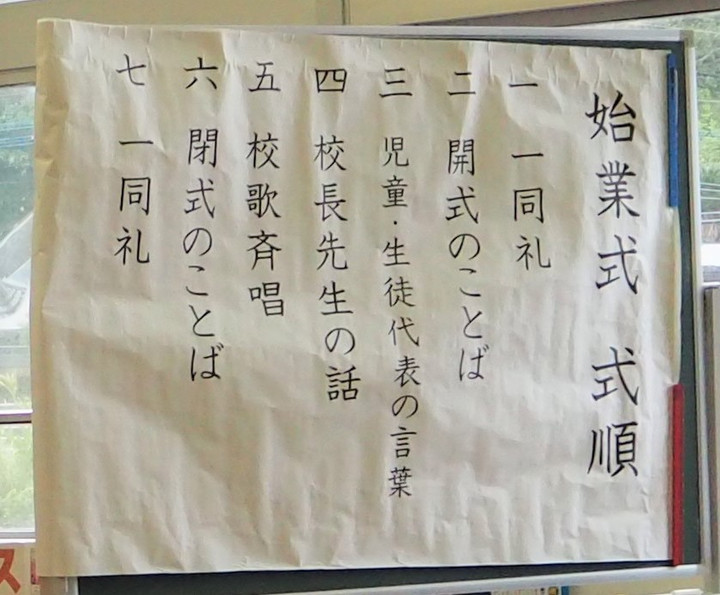 始業式 式順
一 一同礼
二 開式のことば
三 児童・生徒代表の言葉
四 校長先生の話
五 校歌斉唱
六 閉式のことば
七 一同礼
ス